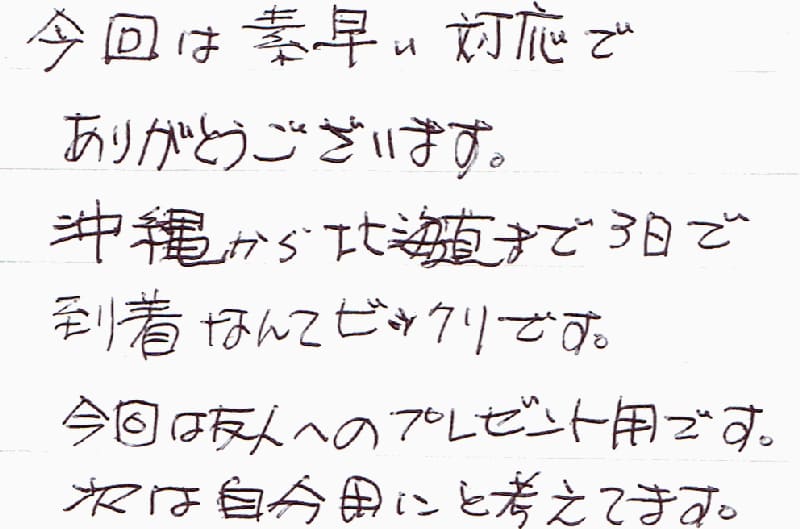 今回は素早い対応で
ありがとうございます。
沖縄から北海道まで3日で
到着なんてビックリです。
今回は友人へのプレゼント用です。
次は自分用にと考えてます。